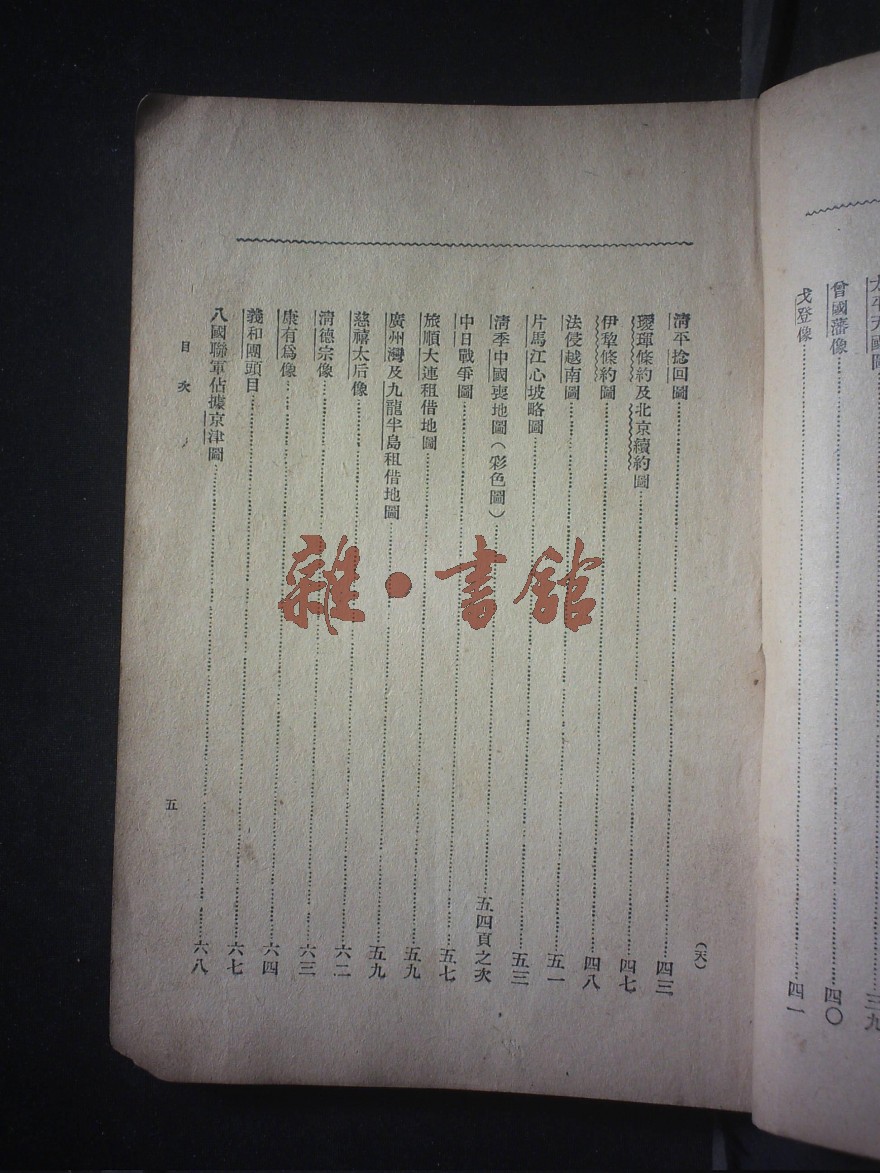 太平天國圖……三九
曾國藩像……四〇
戈登像……四一
(六)
清平捻回圖……四三
璦琿條約及北京續約圖……四七
伊犂條約圖……四八
法侵越南圖……五一
片馬江心坡略圖……五三
清季中國喪地圖(彩色圖)……五四頁之次
中日戰爭圖……五七
旅順大連租借地圖……五九
廣州灣及九龍半島租借地圖……五九
慈禧太后像……六二
清德宗像……六三
康有爲像……六四
義和團頭目……六七
八國聯軍佔據京津圖……六八
目次
五
雜·書館